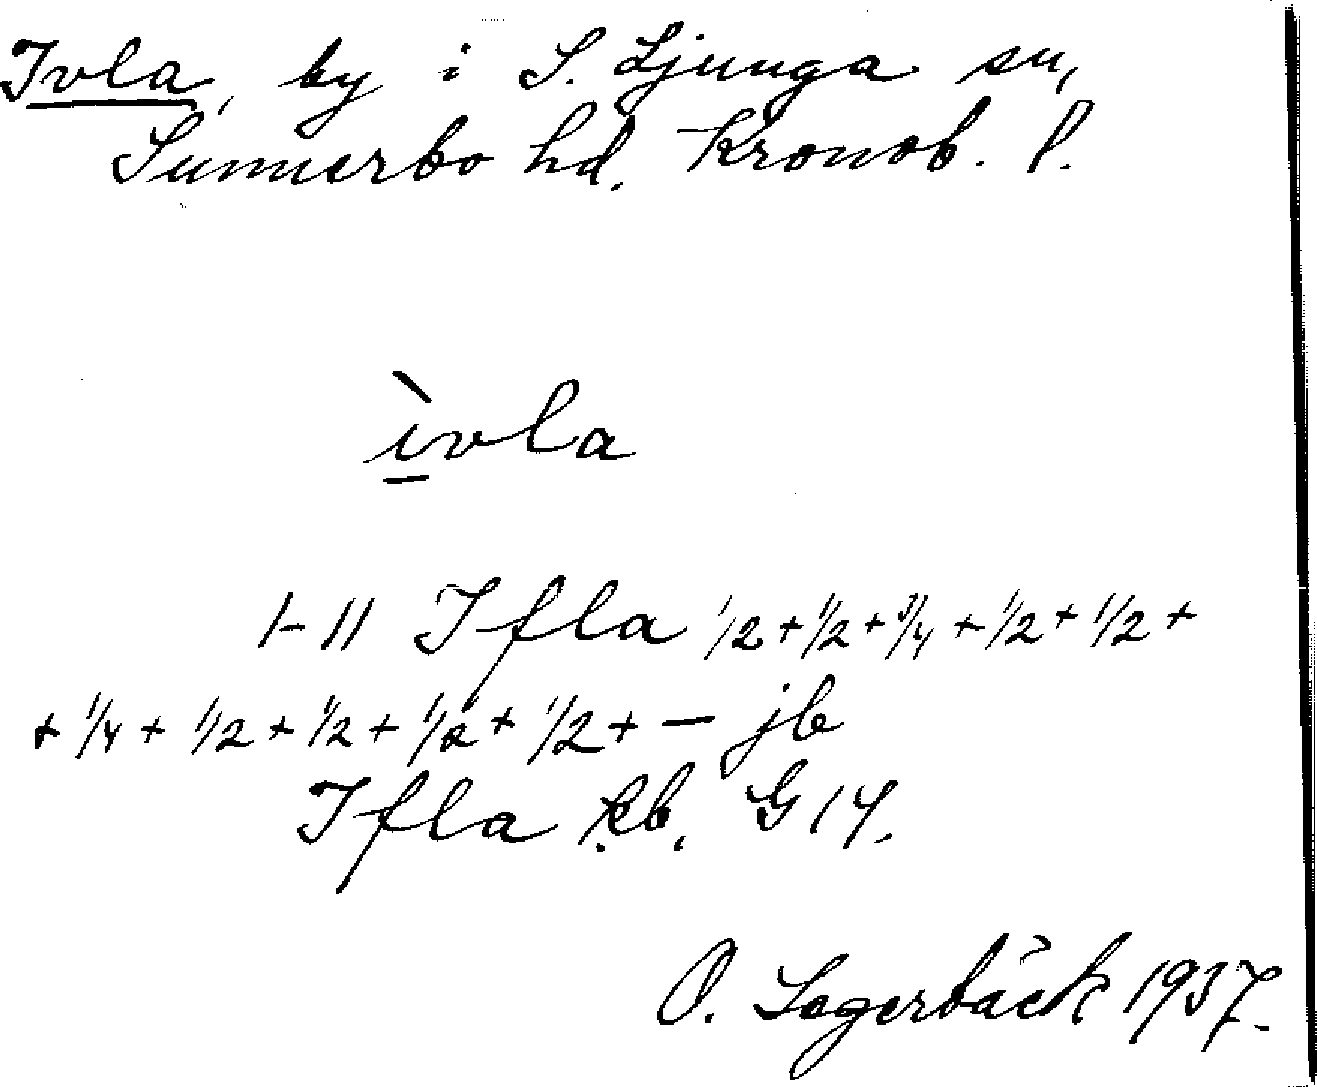 Ivla, by i S. Ljunga sn,
Sunnerbo hd. Kronob. l.
ìvla
1-11 Ifla 1/2 + 1/2 + 3/4 + 1/2 + 1/2 +
+ 1/4 + 1/2 + 1/2 + 1/2 + 1/2 + — jb
Ifla kb. G 14.
O. Lagerbäck 1937.